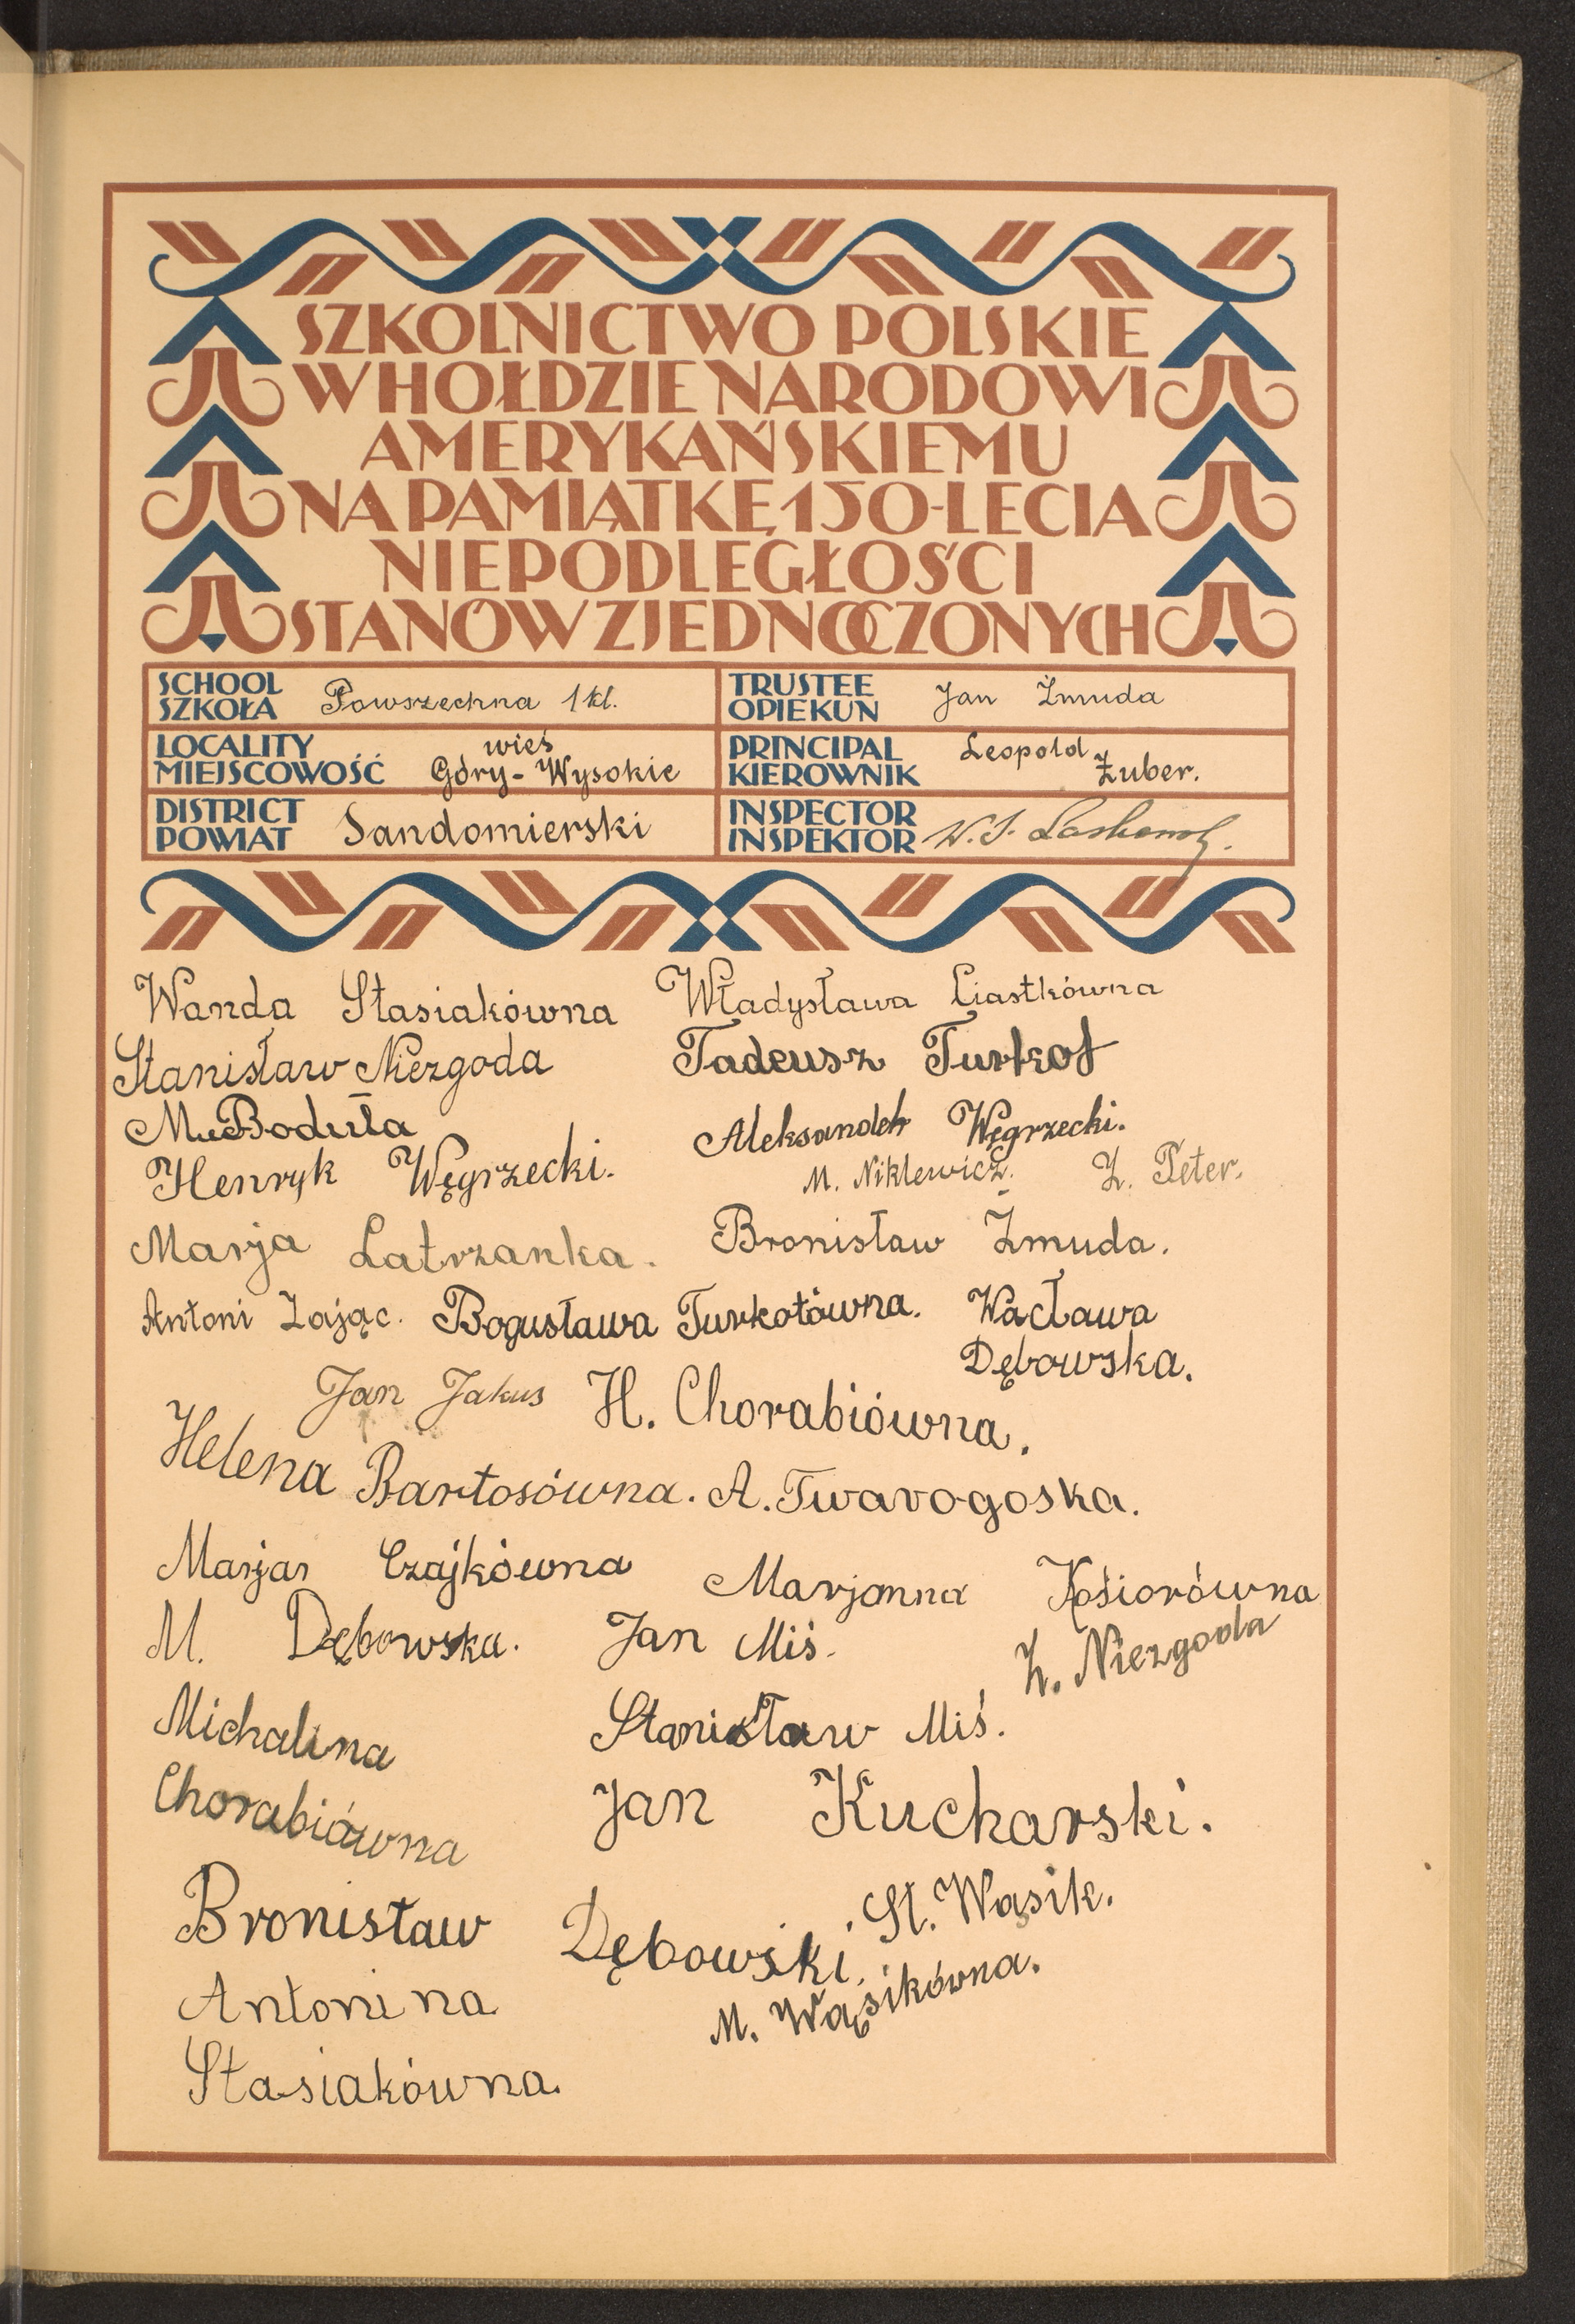 SZKOLNICTWO POLSKIE
W HOŁDZIE NARODOWI
AMERYKAŃSKIEMU
NA PAMIĄTKĘ 150-LECIA
NIEPODLEGŁOŚCI
STANÓW ZJEDNOCZONYCH
SCHOOL
SZKOŁA Powszechna 1 kl.
TRUSTEE
OPIEKUN Jan Żmuda
LOCALITY
MIEJSCOWOŚĆ wieś Góry-Wysokie
PRINCIPAL
KIEROWNIK Leopold Żuber.
DISTRICT
POWIAT Sandomierski
INSPECTOR
INSPEKTOR W. S.
Wanda Stasiakówna Władysława Ciastkówna
Stanisław Niezgoda Tadeusz Turkot
M. Boduła Aleksander Węgrzecki.
Henryk Węgrzecki. M. Niklewicz. Z. Peter.
Marja Latrzanka. Bronisław Żmuda.
Antoni Zając. Bogusława Turkotówna. Wacława
Dębowska.
Jan Jakus H. Chorabiówna.
Helena Bartosówna. A. Twarogoska.
Marja Czajkówna Marjanna Kośiorówna
M. Dębowska. Jan Miś. Z. Niezgoda
Michalina Stanisław Miś.
Chorabiówna Jan Kucharski.
Bronisław Dębowski. St. Wąsik.
Antonina M. Wąsikówna.
Stasiakówna.